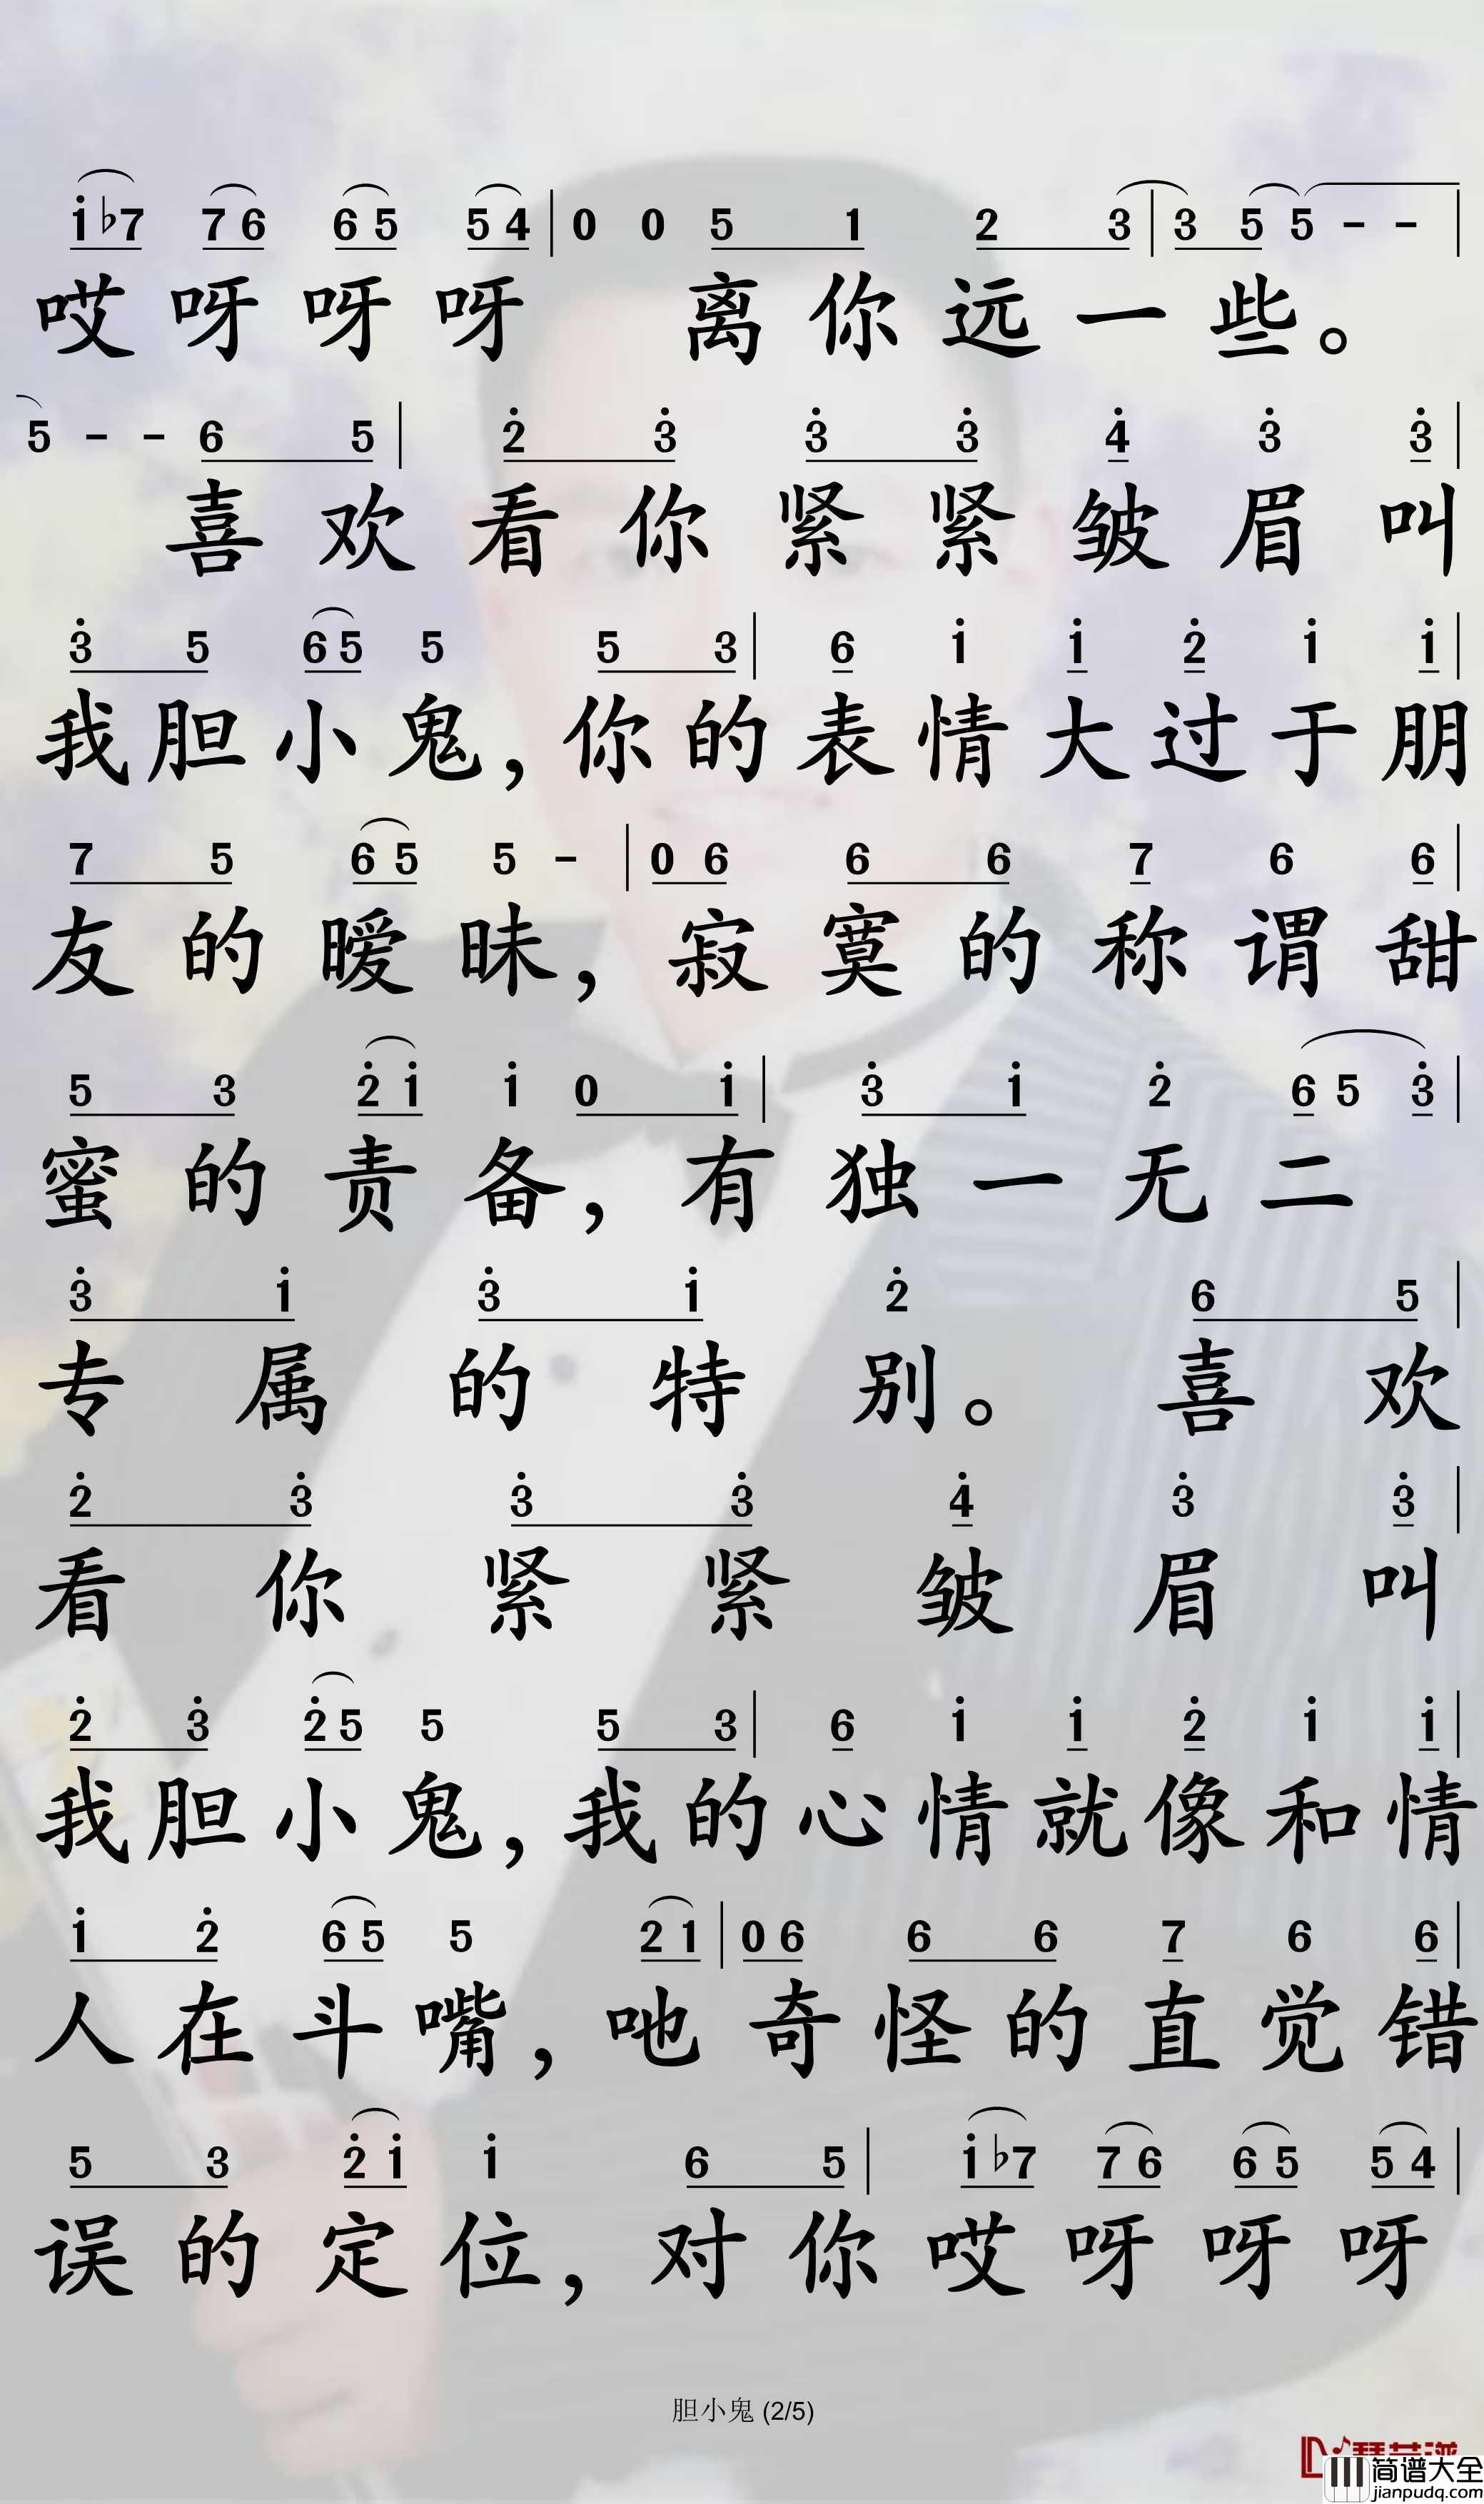 i ♭7 7 6 6 5 5 4 | 0 0 5 1 2 3 | 3 5 5 - - |
哎呀呀呀 离你远一些。
5 - - 6 5 | 2̇ 3̇ 3̇ 3̇ 4̇ 3̇ 3̇ |
喜欢看你紧紧皱眉叫
3̇ 5 6 5 5 5 3 | 6 i i 2̇ i i |
我胆小鬼，你的表情大过于朋
7 5 6 5 5 - | 0 6 6 6 7 6 6 |
友的暧昧，寂寞的称谓甜
5 3 2̇ i i 0 i | 3̇ i 2̇ 6 5 3̇ |
蜜的责备，有独一无二
3̇ i 3̇ i 2̇ 6 5 |
专属的特别。喜欢
2̇ 3̇ 3̇ 3̇ 4̇ 3̇ 3̇ |
看你紧紧皱眉叫
2̇ 3̇ 2̇ 5 5 5 3 | 6 i i 2̇ i i |
我胆小鬼，我的心情就像和情
i 2̇ 6 5 5 2 1 | 0 6 6 6 7 6 6 |
人在斗嘴，吔奇怪的直觉错
5 3 2̇ i i 6 5 | i ♭7 7 6 6 5 5 4 |
误的定位，对你哎呀呀呀
胆小鬼 (2/5)
简谱大全
jianpudq.com